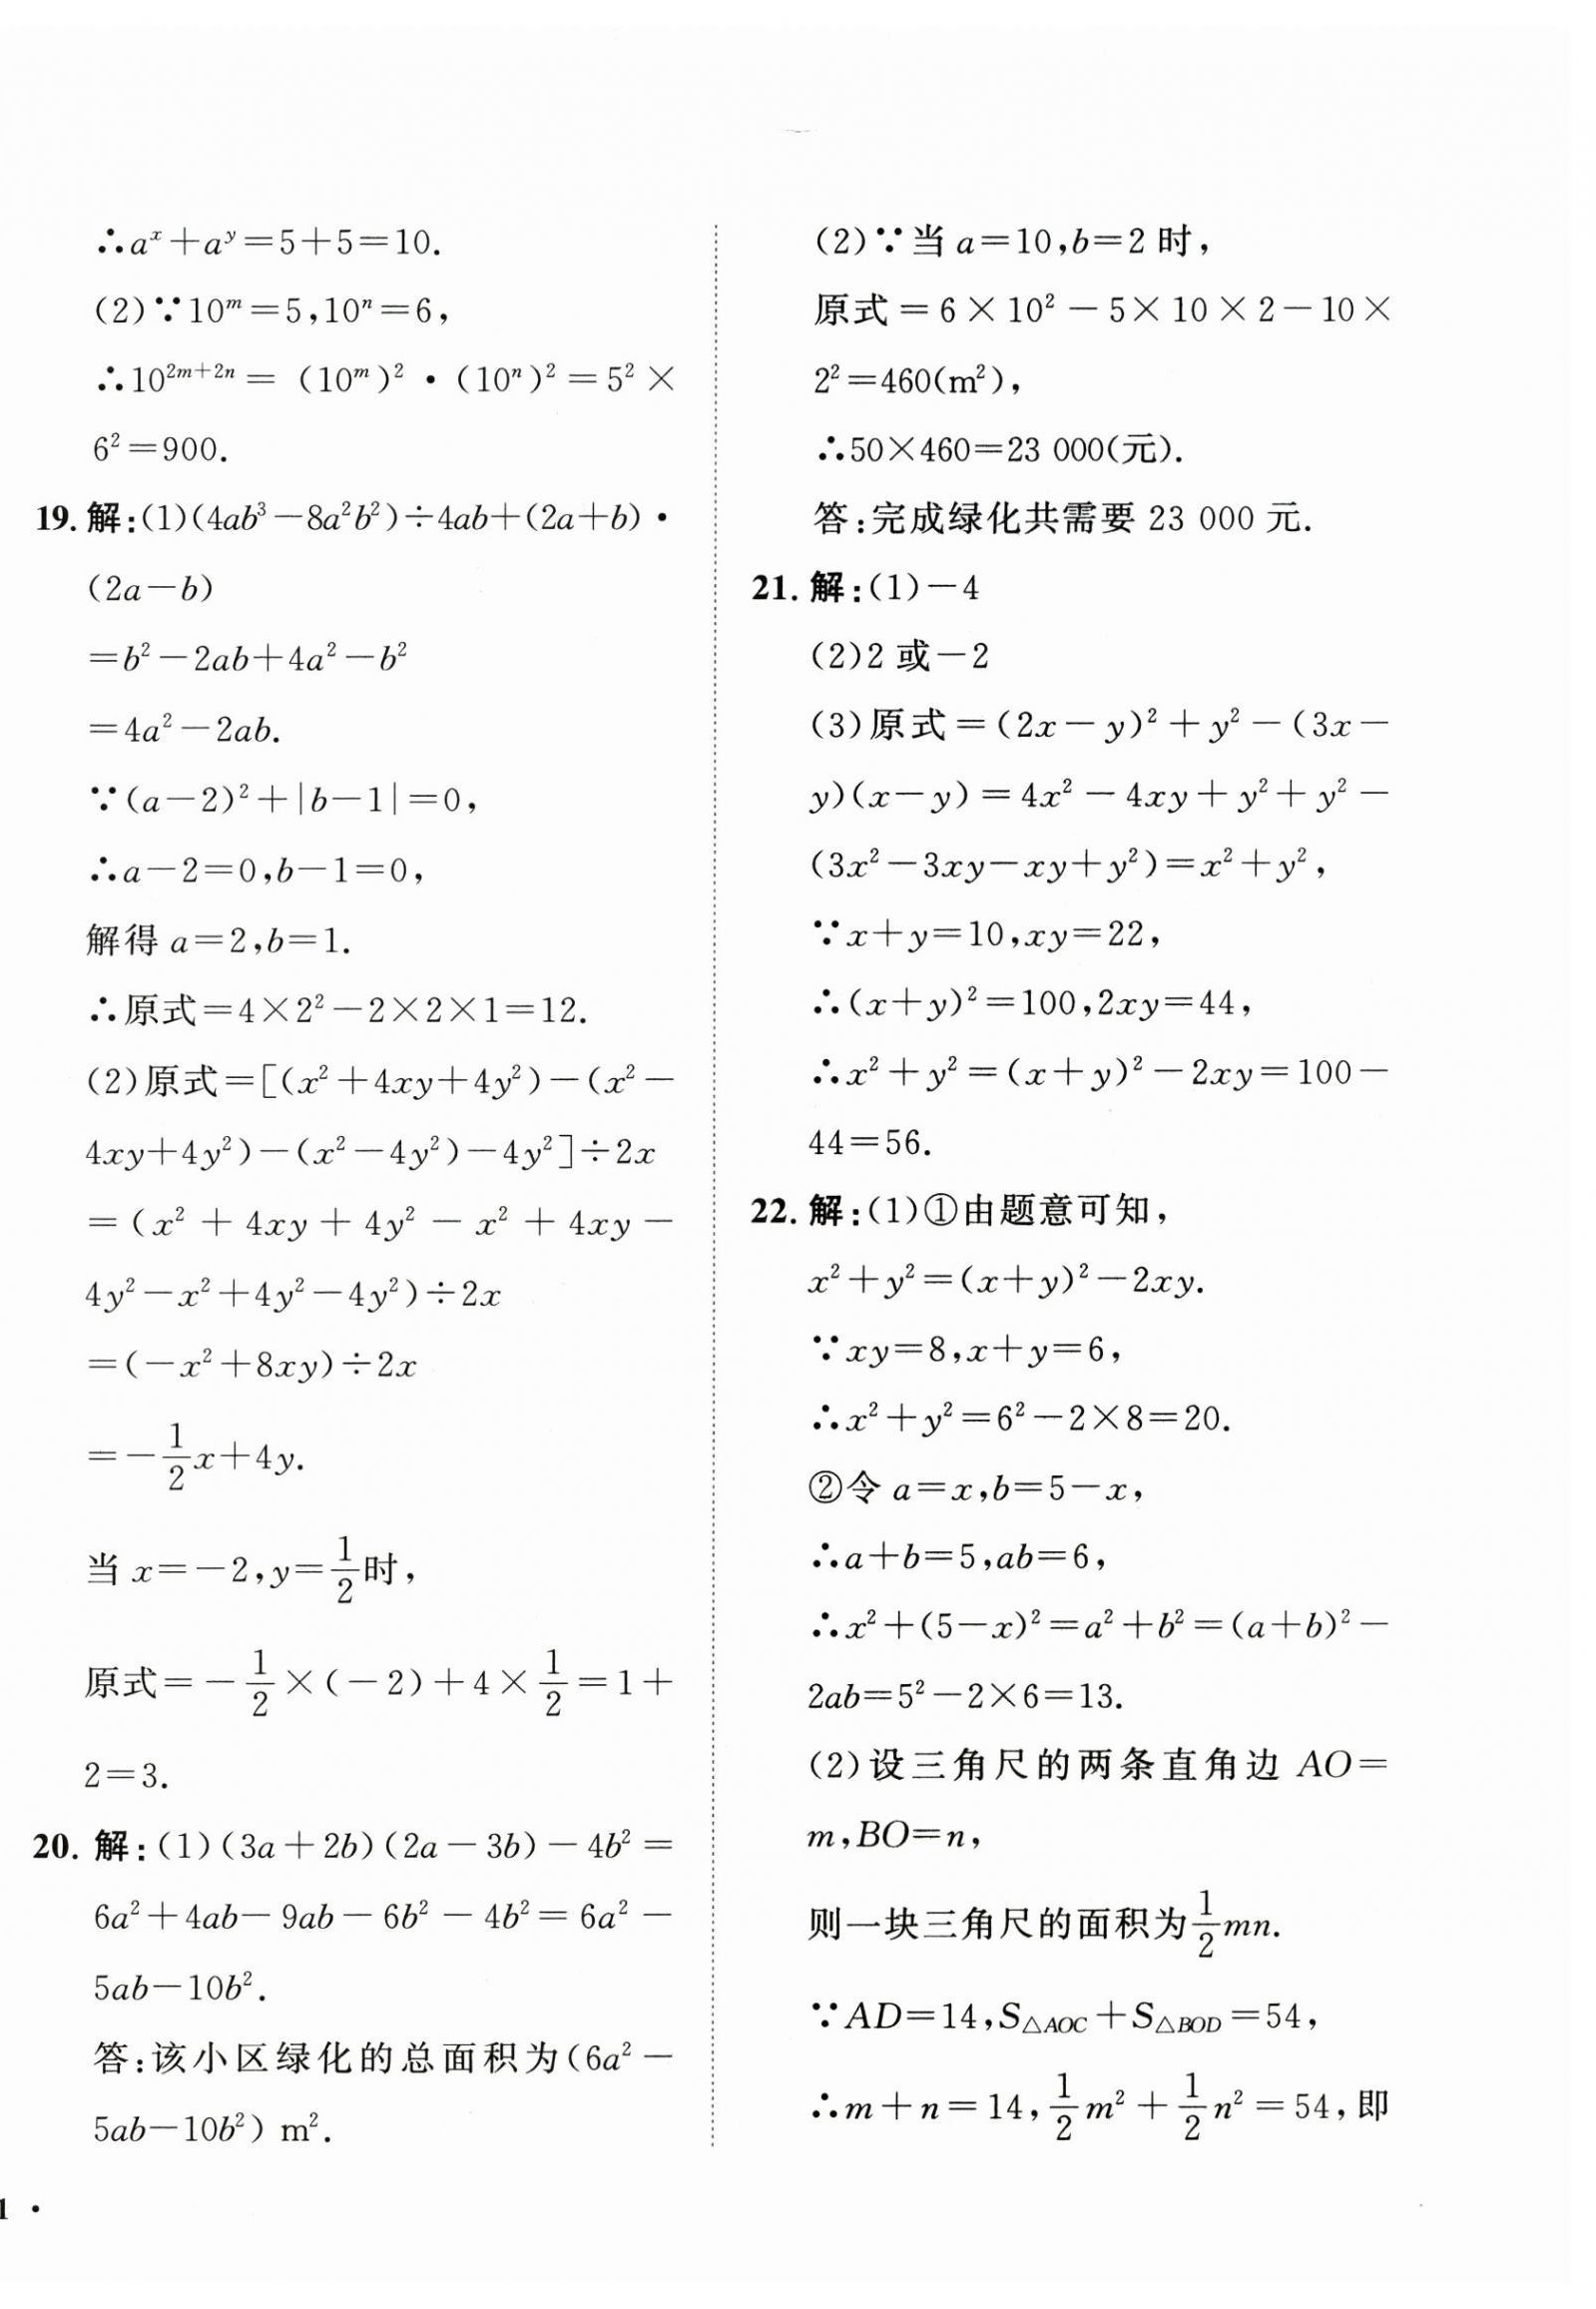 ∴aˣ+aʸ=5+5=10.
(2)∵10ᵐ=5,10ⁿ=6,
∴10²ᵐ⁺²ⁿ=(10ᵐ)²·(10ⁿ)²=5²×
6²=900.
19. 解:(1)(4ab³-8a²b²)÷4ab+(2a+b)·
(2a-b)
=b²-2ab+4a²-b²
=4a²-2ab.
∵(a-2)²+|b-1|=0,
∴a-2=0,b-1=0,
解得 a=2,b=1.
∴原式=4×2²-2×2×1=12.
(2)原式=[(x²+4xy+4y²)-(x²-
4xy+4y²)-(x²-4y²)-4y²]÷2x
=(x²+4xy+4y²-x²+4xy-
4y²-x²+4y²-4y²)÷2x
=(-x²+8xy)÷2x
=-1/2x+4y.
当 x=-2,y=1/2时,
原式=-1/2×(-2)+4×1/2=1+
2=3.
20. 解:(1)(3a+2b)(2a-3b)-4b²=
6a²+4ab-9ab-6b²-4b²=6a²-
5ab-10b².
答:该小区绿化的总面积为(6a²-
5ab-10b²) m².
1 ·
(2)∵当 a=10,b=2 时,
原式=6×10²-5×10×2-10×
2²=460(m²),
∴50×460=23 000(元).
答:完成绿化共需要 23 000 元.
21. 解:(1)-4
(2)2 或-2
(3)原式=(2x-y)²+y²-(3x-
y)(x-y)=4x²-4xy+y²+y²-
(3x²-3xy-xy+y²)=x²+y²,
∵x+y=10,xy=22,
∴(x+y)²=100,2xy=44,
∴x²+y²=(x+y)²-2xy=100-
44=56.
22. 解:(1)①由题意可知,
x²+y²=(x+y)²-2xy.
∵xy=8,x+y=6,
∴x²+y²=6²-2×8=20.
②令 a=x,b=5-x,
∴a+b=5,ab=6,
∴x²+(5-x)²=a²+b²=(a+b)²-
2ab=5²-2×6=13.
(2)设三角尺的两条直角边 AO=
m,BO=n,
则一块三角尺的面积为1/2mn.
∵AD=14,S△AOC+S△BOD=54,
∴m+n=14,1/2m²+1/2n²=54,即